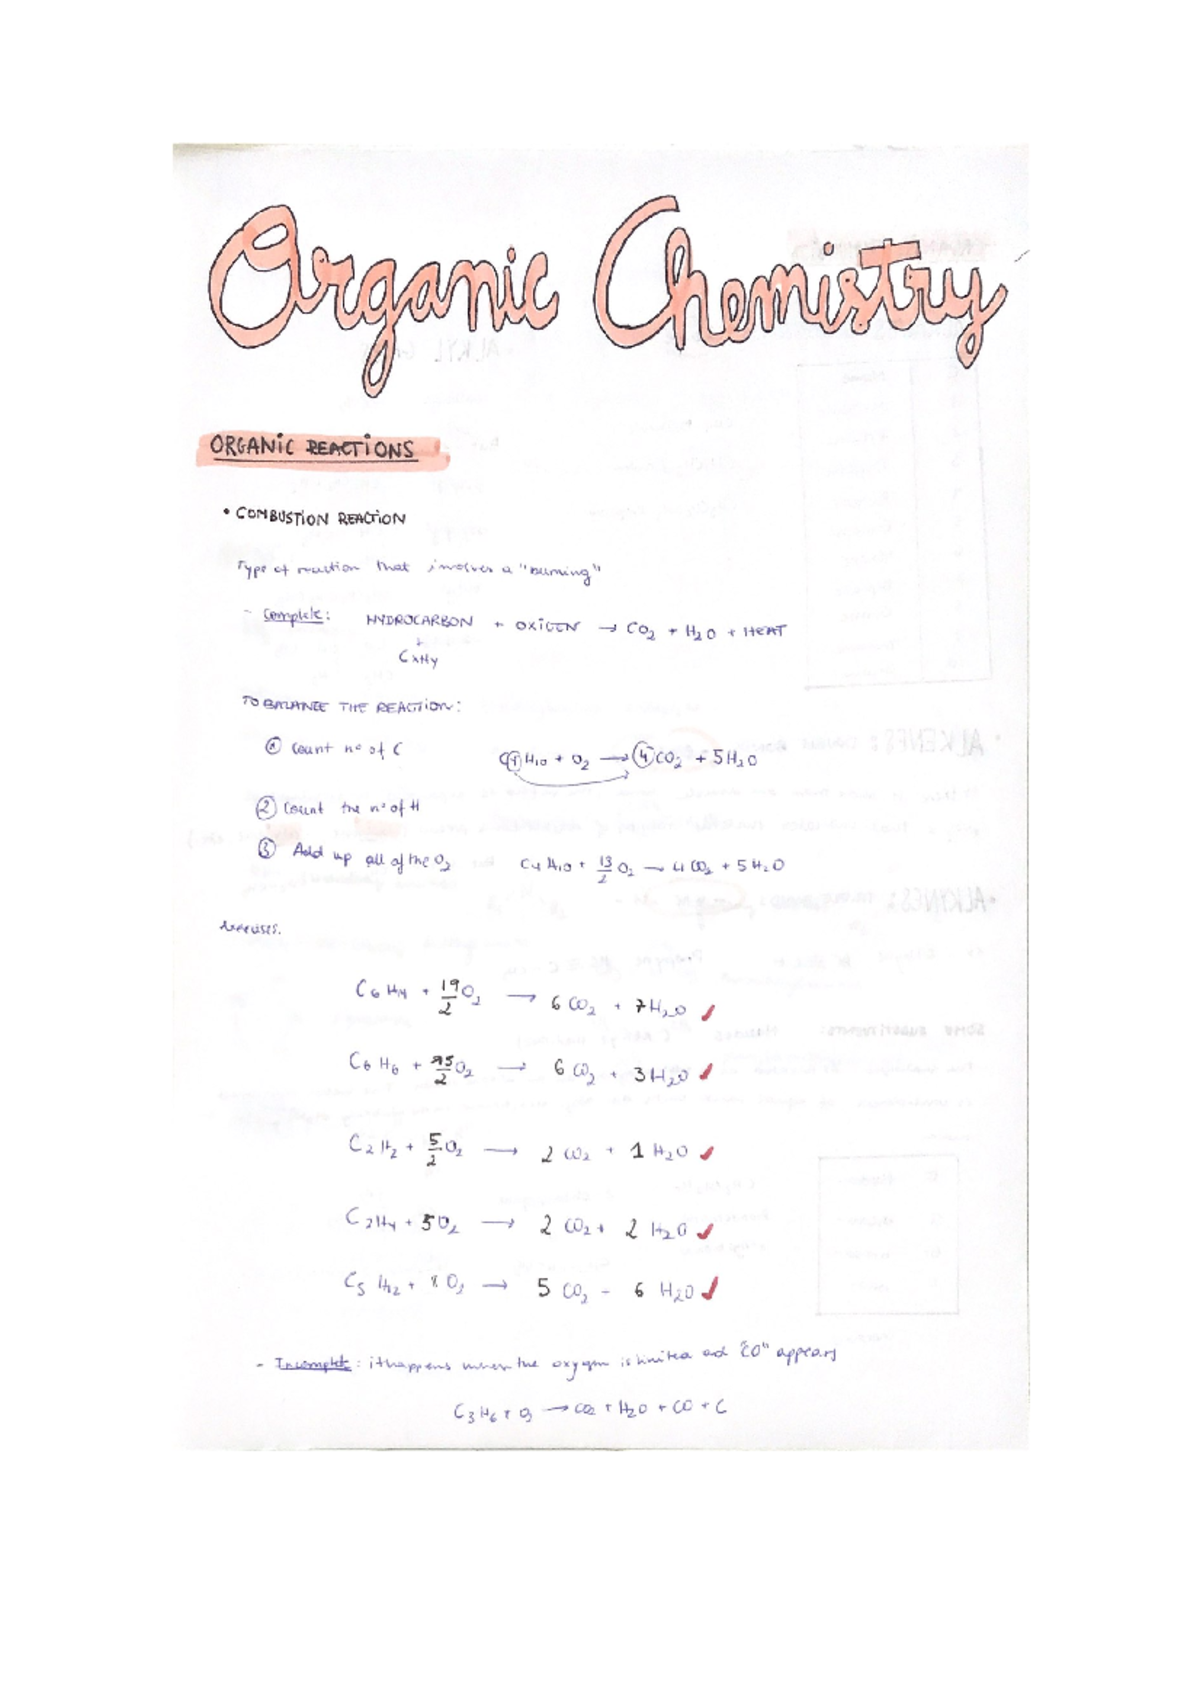 Organic Chemistry
ORGANIC REACTIONS
• COMBUSTION REACTION
Type of reaction that involves a "burning"
- Complete: HYDROCARBON + OXIGEN → CO2 + H2O + HEAT
CxHy
TO BALANCE THE REACTION:
① Count nº of C C4H10 + O2 → 4CO2 + 5H2O
② Count the nº of H
③ Add up all of the O2 C4H10 + 13/2 O2 → 4CO2 + 5H2O
C6H14 + 19/2 O2 → 6CO2 + 7H2O ✓
C6H6 + 15/2 O2 → 6CO2 + 3H2O ✓
C2H2 + 5/2 O2 → 2CO2 + 1H2O ✓
C2H4 + 5O2 → 2CO2 + 2H2O ✓
C5H12 + 8O2 → 5CO2 - 6H2O ✓
- Incomplete: it happens when the oxygen is limited and "CO" appears
C3H6 + O2 → CO2 + H2O + CO + C